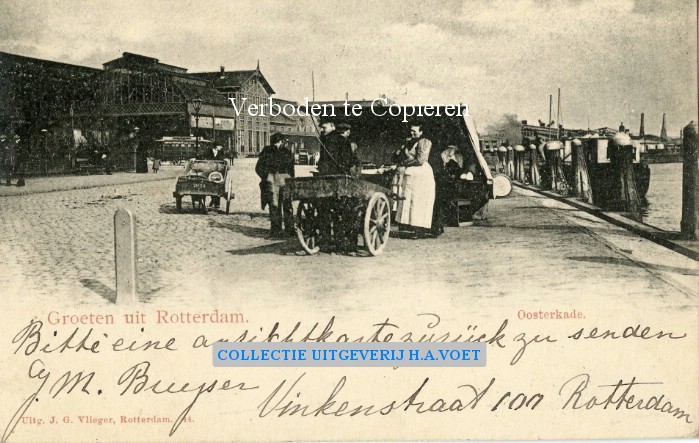 Verboden te Copieren
Groeten uit Rotterdam.
Oosterkade.
Bitte eine ansichtkarte zurück zu senden
COLLECTIE UITGEVERIJ H.A.VOET
M. Bruyser
Vinkenstraat 100 Rotterdam
Uitg. J. G. Vlieger, Rotterdam. 44.